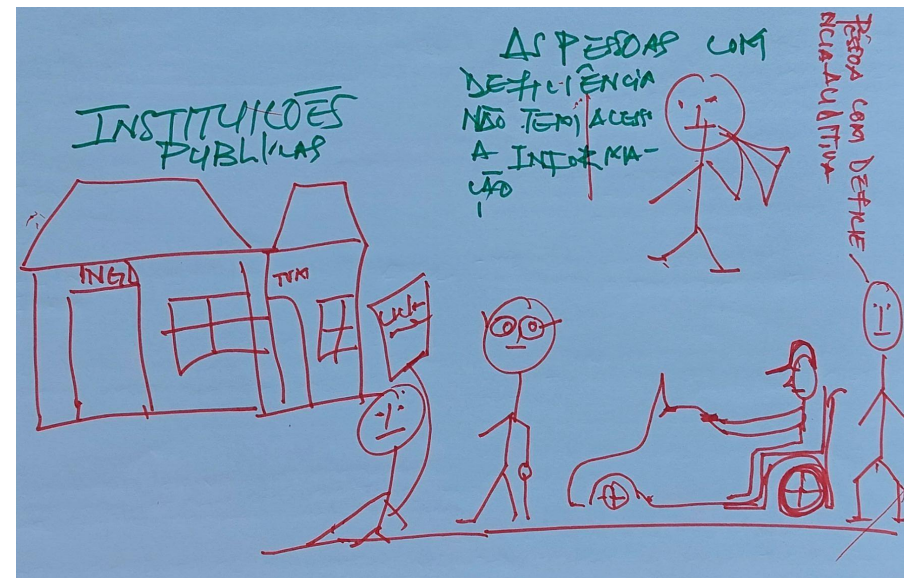 INSTITUIÇÕES
PUBLICAS
AS PESSOAS COM
DEFICIÊNCIA
NÃO TEM ACESS
A INFORMA-
ÇÃO
PESSOA COM DEFICIE
NCIA AUDITIVA
INGD
TVM